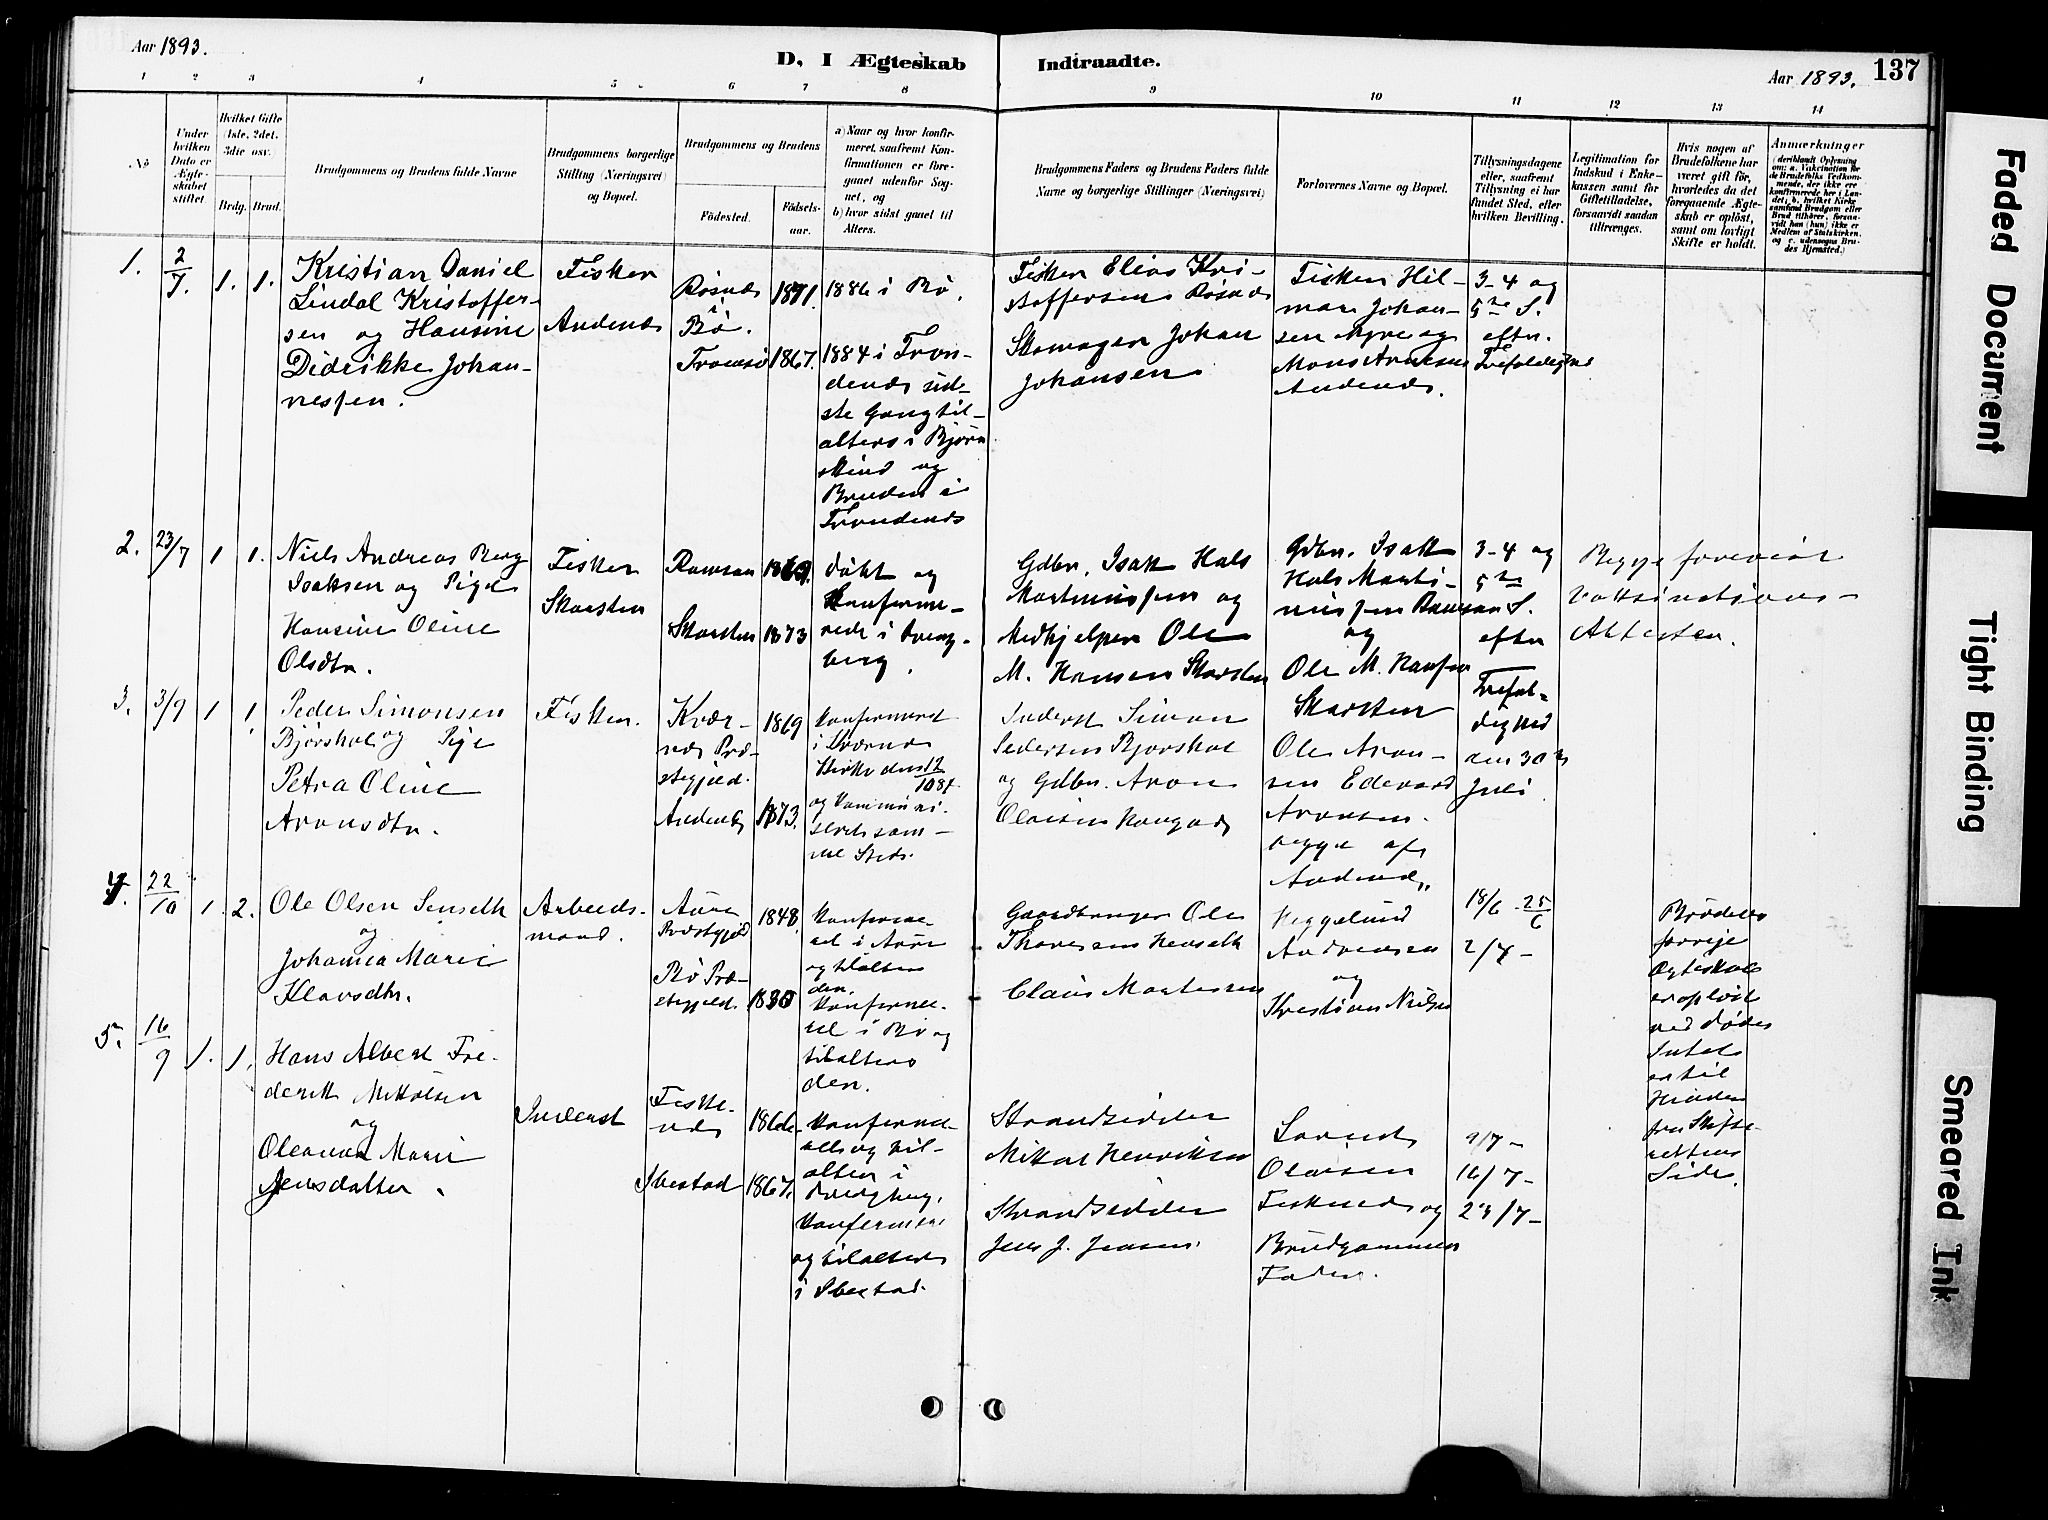 Aar 1893.
D. I Ægteskab Indtraadte.
Aar 1893.
137
1 2 3 4 5 6 7 8 9 10 11 12 13 14
No
Under hvilken Dato er Ægteskabet stiftet.
Hvilket Gifte (1ste, 2det, 3die osv.
Brdg. Brud.
Brudgommens og Brudens fulde Navne
Brudgommens borgerlige Stilling (Næringsvei) og Bopæl.
Brudgommens og Brudens
Fødested.
Fødselsaar.
a) Naar og hvor konfirmeret, saafremt Konfirmationen er foregaaet udenfor Sognet, og
b) hvor sidst gaaet til Alters.
Brudgommens Faders og Brudens Faders fulde Navne og borgerlige Stillinger (Næringsvei)
Forlovernes Navne og Bopæl.
Tillysningsdagene eller, saafremt Tillysning ei har fundet Sted, efter hvilken Bevilling.
Legitimation for Indskud i Enkekassen samt for Giftetilladelse, forsaavidt saadan tiltrænges.
Hvis nogen af Brudefolkene har været gift før, hvorledes da det foregaaende Ægteskab er opløst, samt om lovligt Skifte er holdt.
Anmærkninger
(deriblandt Oplysning om: a. Vakcination for de Brudefolks Vedkommende, der ikke ere konfirmerede her i Landet; b. hvilket Kirkesamfund Brudgom eller Brud tilhører, forsaavidt han (hun) ikke er Medlem af Statskirken, og c. udensogns Brudes Hjemsted.)
1. 2/7. 1. 1.
Kristian Daniel
Lindal Kristoffer-
sen og Hansine
Didrikke Johan-
nessen.
Fisker
Andenes
Røsnes
i
Bø.
Tromsø
1871.
1867.
1886 i Bø.
1884 i Tron-
denæs sid-
ste Gang til-
alters i Bjørn
skind og
Bruden i
Trondenæs
Fisker Elias Kri-
stoffersen Røsnes
Skomager Johan
Johansen
Fisker Hil-
mar Johan-
sen Myre og
Mons Arntsen
Andenæs.
3-4 og
5te S.
efter
Trefoldighed
2. 23/7 1 1.
Niels Andreas Berg
Isaksen og Pige
Hansine Oline
Olsdtr.
Fisker
Skarsten
Ramsaa
Skarsten
1873
døbt og
Konfirme-
rede i Dverg-
berg.
Gdbr. Isak Hals
Martinussen og
Medhjelper Ole
M. Hansen Skarsten
Gdbr. Isak
Hals Marti-
nussen Ramsaa
og
Ole M. Hansen
Skarsten
3-4 og
5te
S.
efter
Trefol-
dighed
den 30te
Juli
Begge foreviist
Vaksinations-
Attester.
3. 3/9 1 1.
Peder Simonsen
Bjørskol og Pige
Petra Oline
Aronsdtr.
Fisker.
Kvær-
næs Præ-
stegjeld.
Andenæs
1869
1873.
Konfirmeret
i Kværnæs
Kirke den 12/10 84
og kommuni-
seret sam-
me Steds.
Inderst Simon
Pedersen Bjørskol
og Gdbr. Aron
Olaisen Haugnes
Ole Aron-
sen Edevard
Aronsen.
begge af
Andenæs
4. 22/10 1. 2.
Ole Olsen Henselk
og
Johanna Marie
Klausdtr.
Arbeids-
mand.
Aure
Præstegjeld
Bø Præ-
stegjeld.
1848.
Konfirme-
ret i Aure
og tilalters
den.
Konfirme-
ret i Bø og
tilalters
den.
Gaardbruger Ole
Thoresen Henselk
Claus Mortensen
Heggelund
Andreasen
og
Kristian Nielsen
18/6 - 25/6
2/7 -
Brudens
forrige
Ægteskab
er opløst
ved Døden
Intet
er til
Hinder
fra Skifte-
rettens
Side.
5. 16/9 1. 1.
Hans Albert Fre-
derik Mikalsen
og
Oleanna Marie
Jensdatter.
Inderst
Fiske-
næs
Ibestad
1866
1867.
Konfirme-
ret og til-
alters i
Dverberg.
Konfirmere
og tilalters
i Ibestad.
Strandsidder
Mikal Henriksen
Strandsidder
Jens J. Jensen.
Lorents
Olaisen
Fiskenæs og
Brudgommens
Fader.
9/7 -
16/7 -
23/7 -
Faded Document
Tight Binding
Smeared Ink